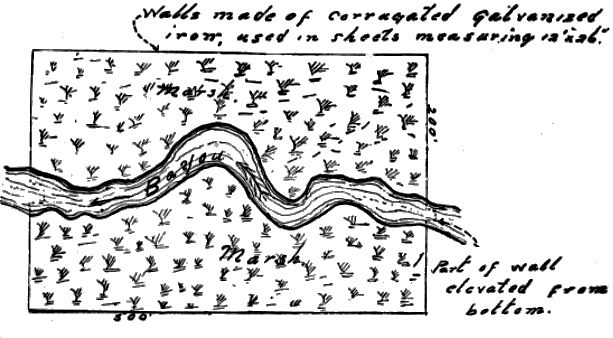 Walls made of corrugated galvanized
iron, used in sheets measuring 12"x26".
Marsh.
200'
Bayou
Marsh.
Part of wall
elevated from
bottom.
500'